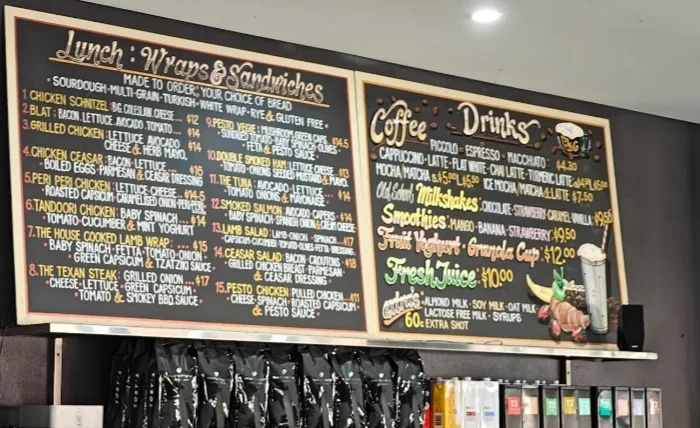 Lunch: Wraps & Sandwiches
MADE TO ORDER, YOUR CHOICE OF BREAD
• SOURDOUGH • MULTI-GRAIN • TURKISH • WHITE WRAP • RYE & GLUTEN FREE •
1. CHICKEN SCHNITZEL: B.G. COLESLAW, CHEESE.... $12
2. BLAT: BACON, LETTUCE, AVOCADO, TOMATO.... $14
3. GRILLED CHICKEN: LETTUCE, AVOCADO $14
CHEESE & HERB MAYO.
4. CHICKEN CEASAR: BACON • LETTUCE •••• $15
BOILED EGGS • PARMESAN & CEASAR DRESSING
5. PERI PERI CHICKEN: LETTUCE • CHEESE •••• $14.5
ROASTED CAPSICUM • CARAMELISED ONION • PERI-PERI.
6. TANDOOR CHICKEN: BABY SPINACH.... $14
TOMATO • CUCUMBER & MINT YOGHURT
7. THE HOUSE COOKED LAMB WRAP: ••• $15
BABY SPINACH • FETTA • TOMATO • ONION •
GREEN CAPSICUM & TZATZIKI SAUCE
8. THE TEXAN STEAK: GRILLED ONION.... $17
CHEESE • LETTUCE • GREEN CAPSICUM •
TOMATO & SMOKEY BBQ SAUCE •
9. PESTO VEGIE: MUSHROOM, GREEN CAPS. $14.5
SUNDRIED TOMATO • BABY SPINACH • OLIVES •
FETA & PESTO SAUCE •
10. DOUBLE SMOKED HAM: LETTUCE, CHEESE $13
TOMATO • ONIONS, SEEDED MUSTARD & MAYO.
11. THE TUNA: AVOCADO • LETTUCE.... $14
TOMATO • ONIONS & MAYONAISE •
12. SMOKED SALMON: AVOCADO • CAPERS •• $14
BABY SPINACH • SPANISH ONION & CREAM CHEESE
13. LAMB SALAD: LAMB • ONION • SPINACH ••• $17
CAPSICUM • CUCUMBER • TOMATO • OLIVES • FETTA • DRESSING •
14. CEASAR SALAD: BACON • CROUTONS •• $18
GRILLED CHICKEN BREAST, PARMESAN
& CEASAR DRESSING •
15. PESTO CHICKEN: PULLED CHICKEN.... $11
CHEESE • SPINACH • ROASTED CAPSICUM
& PESTO SAUCE •
Coffee Drinks
PICCOLO • ESPRESSO • MACCHIATO • $4.30
CAPPUCCINO • LATTE • FLAT WHITE • CHAI LATTE • TURMERIC LATTE
MOCHA/MATCHA ICE MOCHA/MATCHA & LATTE $7.50
Old School Milkshakes: CHOCOLATE • STRAWBERRY • CARAMEL • VANILLA $9.50
Smoothies: MANGO • BANANA • STRAWBERRY $9.50
Fruit Yoghurt • Granola Cup: $12.00
Fresh Juice • $10.00
extra's 60c
ALMOND MILK • SOY MILK • OAT MILK
LACTOSE FREE MILK • SYRUPS
EXTRA SHOT